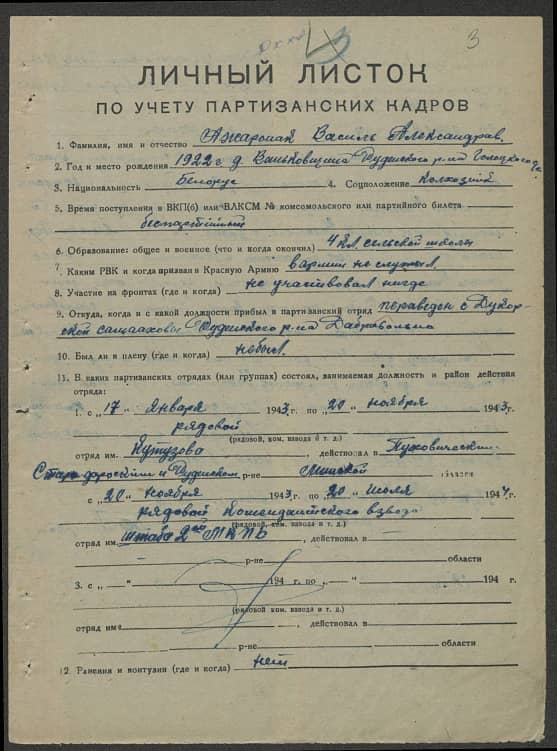 3
ЛИЧНЫЙ ЛИСТОК
ПО УЧЕТУ ПАРТИЗАНСКИХ КАДРОВ
1. Фамилия, имя и отчество Василь Александрав.
2. Год и место рождения 1922 г д.
3. Национальность Белорус 4. Соцположение Колхозник
5. Время поступления в ВКП(б) или ВЛКСМ № комсомольского или партийного билета
беспартийный
6. Образование: общее и военное (что и когда окончил) 4 кл сельской школы
7. Каким РВК и когда призван в Красную Армию вармии не служил.
8. Участие на фронтах (где и когда) не участвовал нигде
9. Откуда, когда и с какой должности прибыл в партизанский отряд переведен с Дукор-
ской р-на Дабравольно
10. Был ли в плену (где и когда) небыл.
11. В каких партизанских отрядах (или группах) состоял, занимаемая должность и район действия
отряда:
1. с „17“ Января 1943 г. по „20“ ноября 1943 г.
рядовой
(рядовой, ком. взвода и т. д.)
отряд им. Кутузова, действовал в Пуховическим
и р-не Минской области
с „20“ ноября 1943 г. по „20“ июля 1944 г.
рядовой Комендантского взвода
(рядовой, ком. взвода и т. д.)
отряд им. Штаба 2ой, действовал в
р-не области
3. с „ “ 194 г. по „ “ 194 г.
(рядовой ком. взвода и т. д.)
отряд име, действовал в
р-не области
12. Ранения и контузии (где и когда) нет